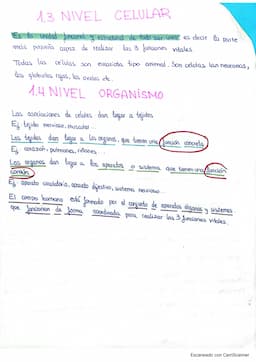 1.3 NIVEL CELULAR
Es la unidad funcional y estructural de todo ser vivo, es decir la parte
más pequeña capaz de realizar las 3 funciones vitales.
Todas las células son eucariota tipo animal. Son células las neuronas,
los glóbulos rojos, los óvulos etc.
1.4 NIVEL ORGANISMO
Las asociaciones de células dan lugar a tejidos.
Ej tejido nervioso, muscular...
Los tejidos dan lugar a los organos, que tienen una función concreta.
Ej corazón, pulmones, riñones...
Los organos dan lugar a los aparatos o sistemas que tienen una función
común.
Ej aparato circulatorio, aparato digestivo, sistema nervioso...
El cuerpo humano está formado por el conjunto de aparatos órganos y sistemas
que funcionan de forma coordinada para realizar las 3 funciones vitales.
Escaneado con CamScanner